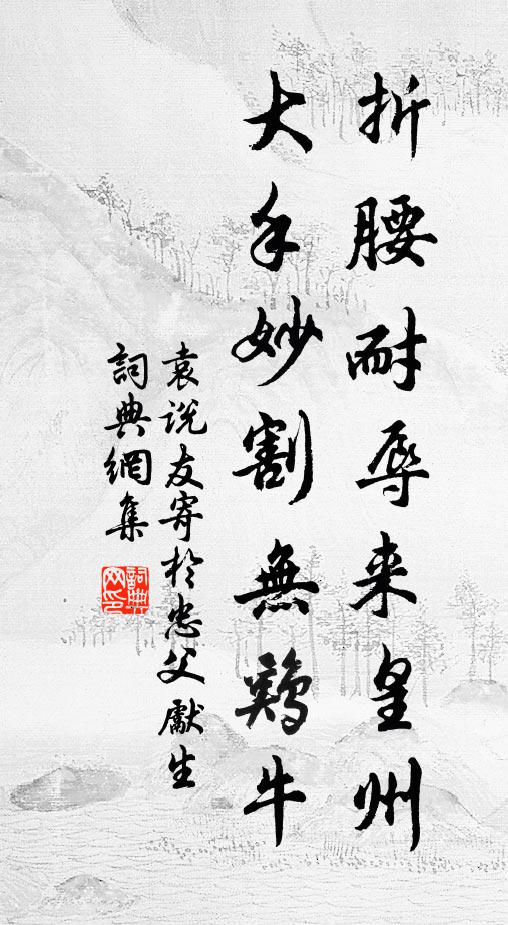 折腰耐辱来皇州
大手妙割無鷄牛
袁说友寄於忠父獻生
詞典網集
詞典
网印